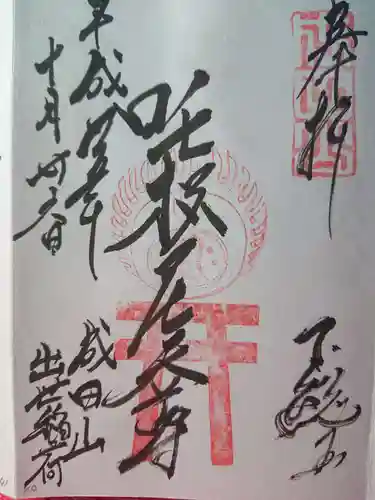 奉拝
下総国
吒枳尼天尊
成田山
出世稲荷
平成廿五年
十月廿五日